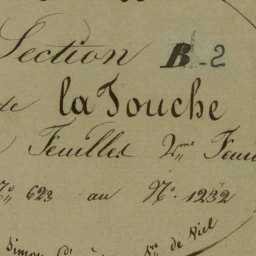 Section B-2
de la Touche
Feuilles 2me Feui
No 623 au No 1232
Simon
de Viel